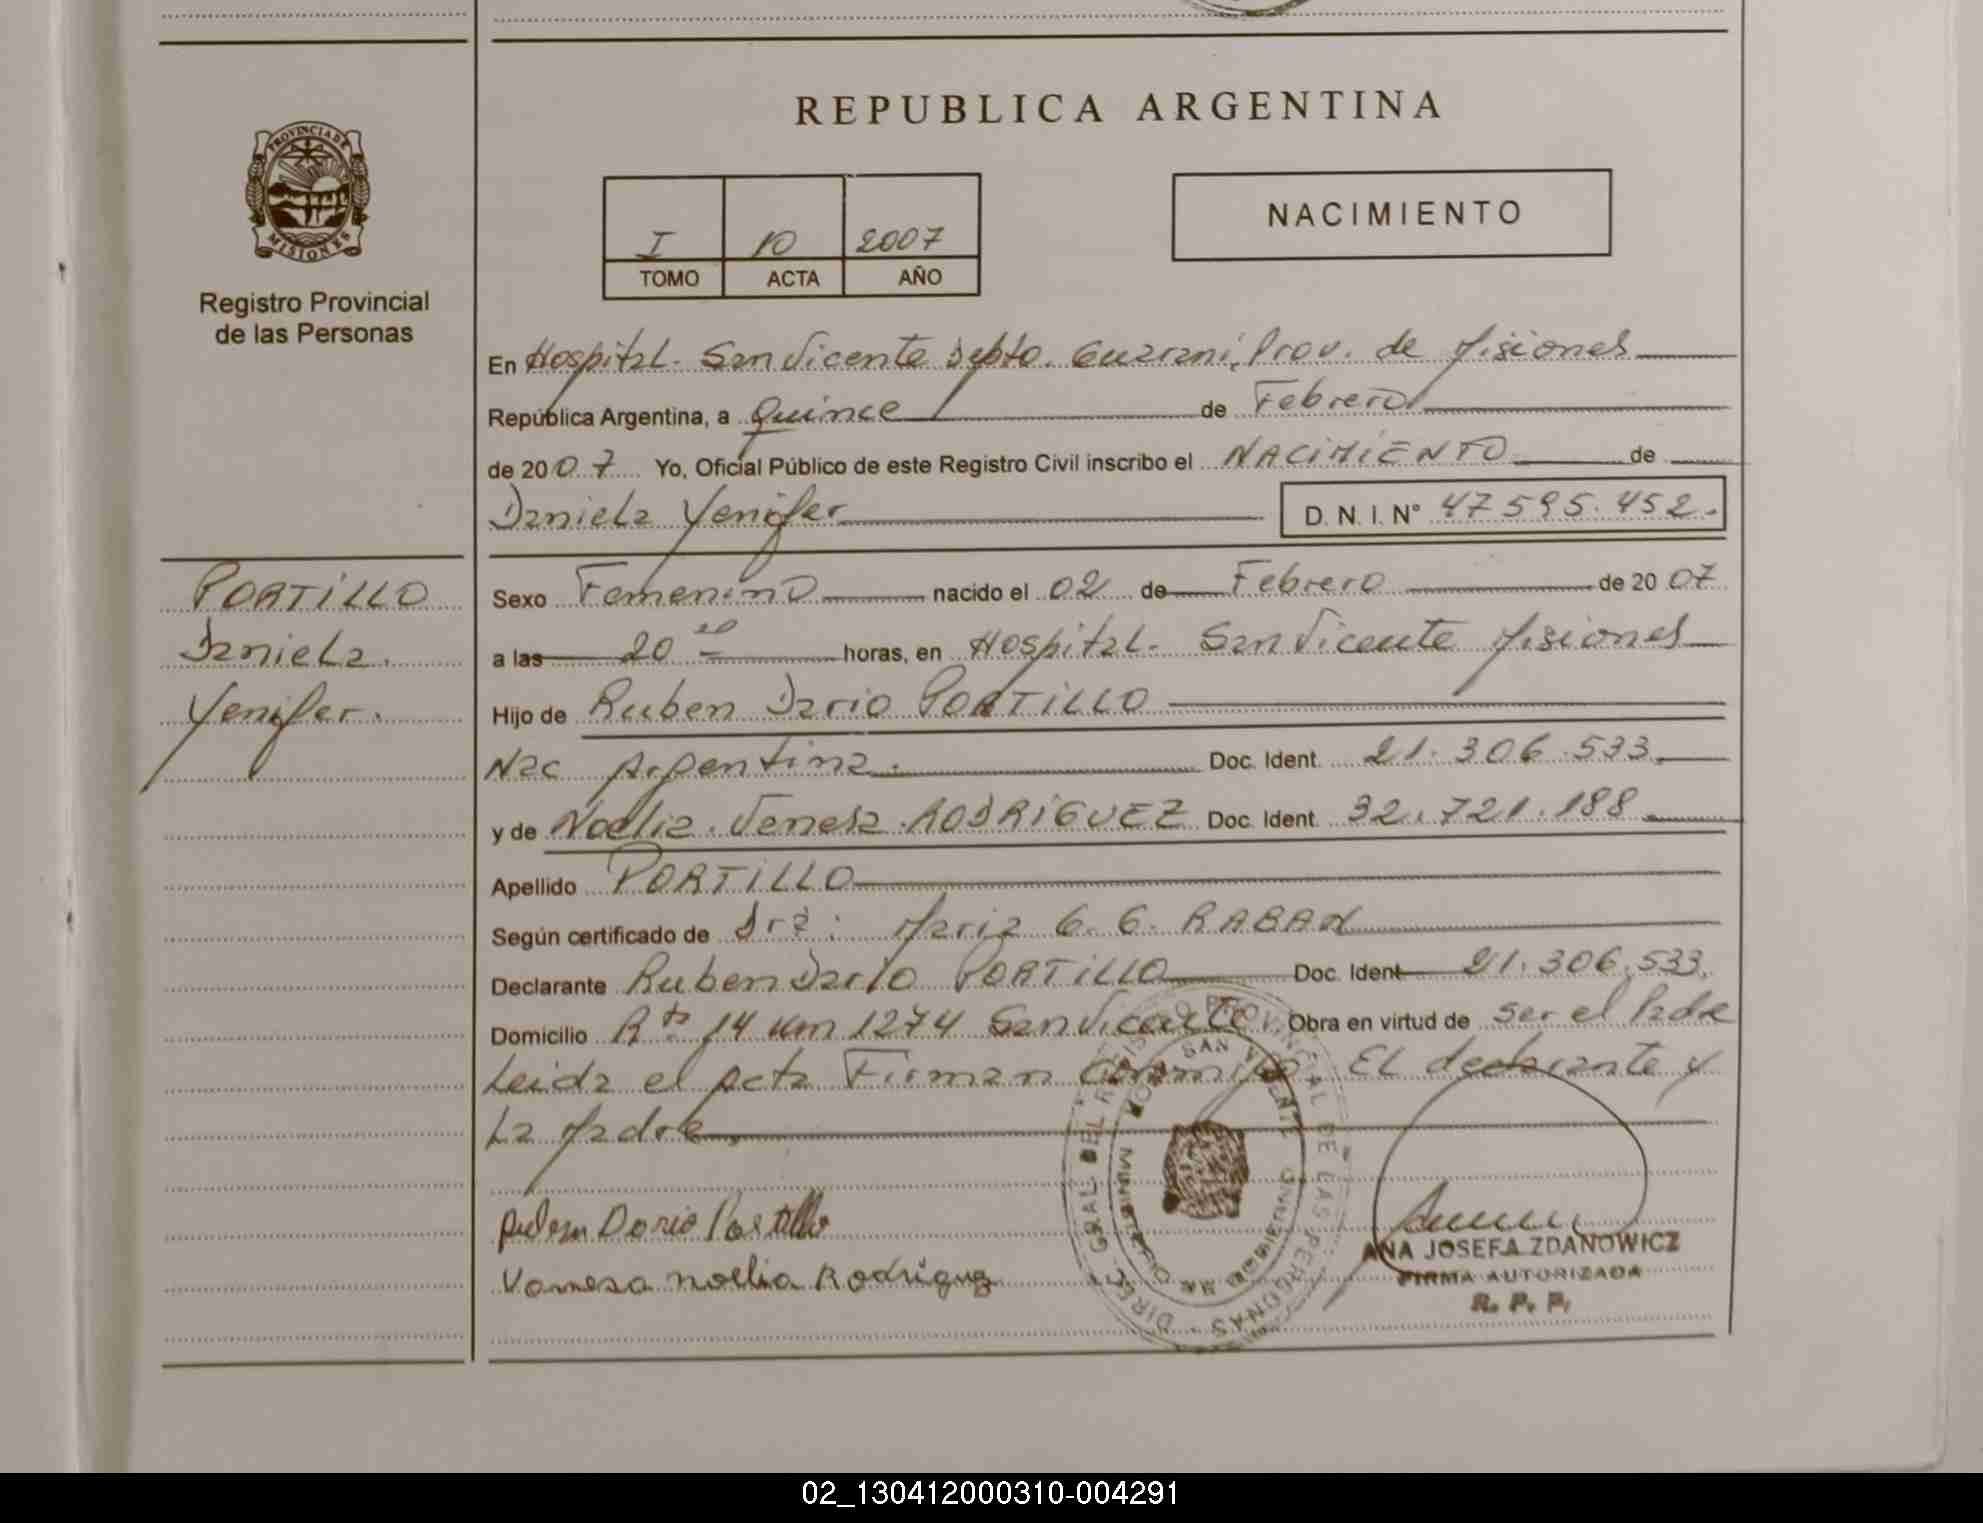 REPUBLICA ARGENTINA
PROVINCIA DE MISIONES
Registro Provincial
de las Personas
I 10 2007
TOMO ACTA AÑO
NACIMIENTO
En Hospital - San Vicente Depto. Guarani, Prov. de Misiones
República Argentina, a Quince de Febrero
de 2007 Yo, Oficial Público de este Registro Civil inscribo el NACIMIENTO de
Daniela Yenifer D. N. I. N° 47595.452.
PORTILLO
Daniela.
Yenifer.
Sexo Femenino nacido el 02 de Febrero de 2007
a las 20 20 horas, en Hospital - San Vicente Misiones
Hijo de Ruben Dario PORTILLO
Nac Argentina. Doc. Ident. 21.306.533.
y de Noelia Venesa RODRIGUEZ Doc. Ident. 32.721.188
Apellido PORTILLO
Según certificado de Dra: Maria G. G. RABAN
Declarante Ruben Dario PORTILLO Doc. Ident 21.306.533.
Domicilio Rta 14 km 1274 San Vicente Obra en virtud de ser el Padre
Leida el acta Firman conmigo EL declarante y
La Madre
Ruben Dario Portillo
Vanesa noelia Rodriguez
DIREC. GRAL. DEL REGISTRO PROVINCIAL DE LAS PERSONAS
SAN VICENTE
MINISTERIO DE GOBIERNO
ANA JOSEFA ZDANOWICZ
FIRMA AUTORIZADA
R. P. P.
02_130412000310-004291